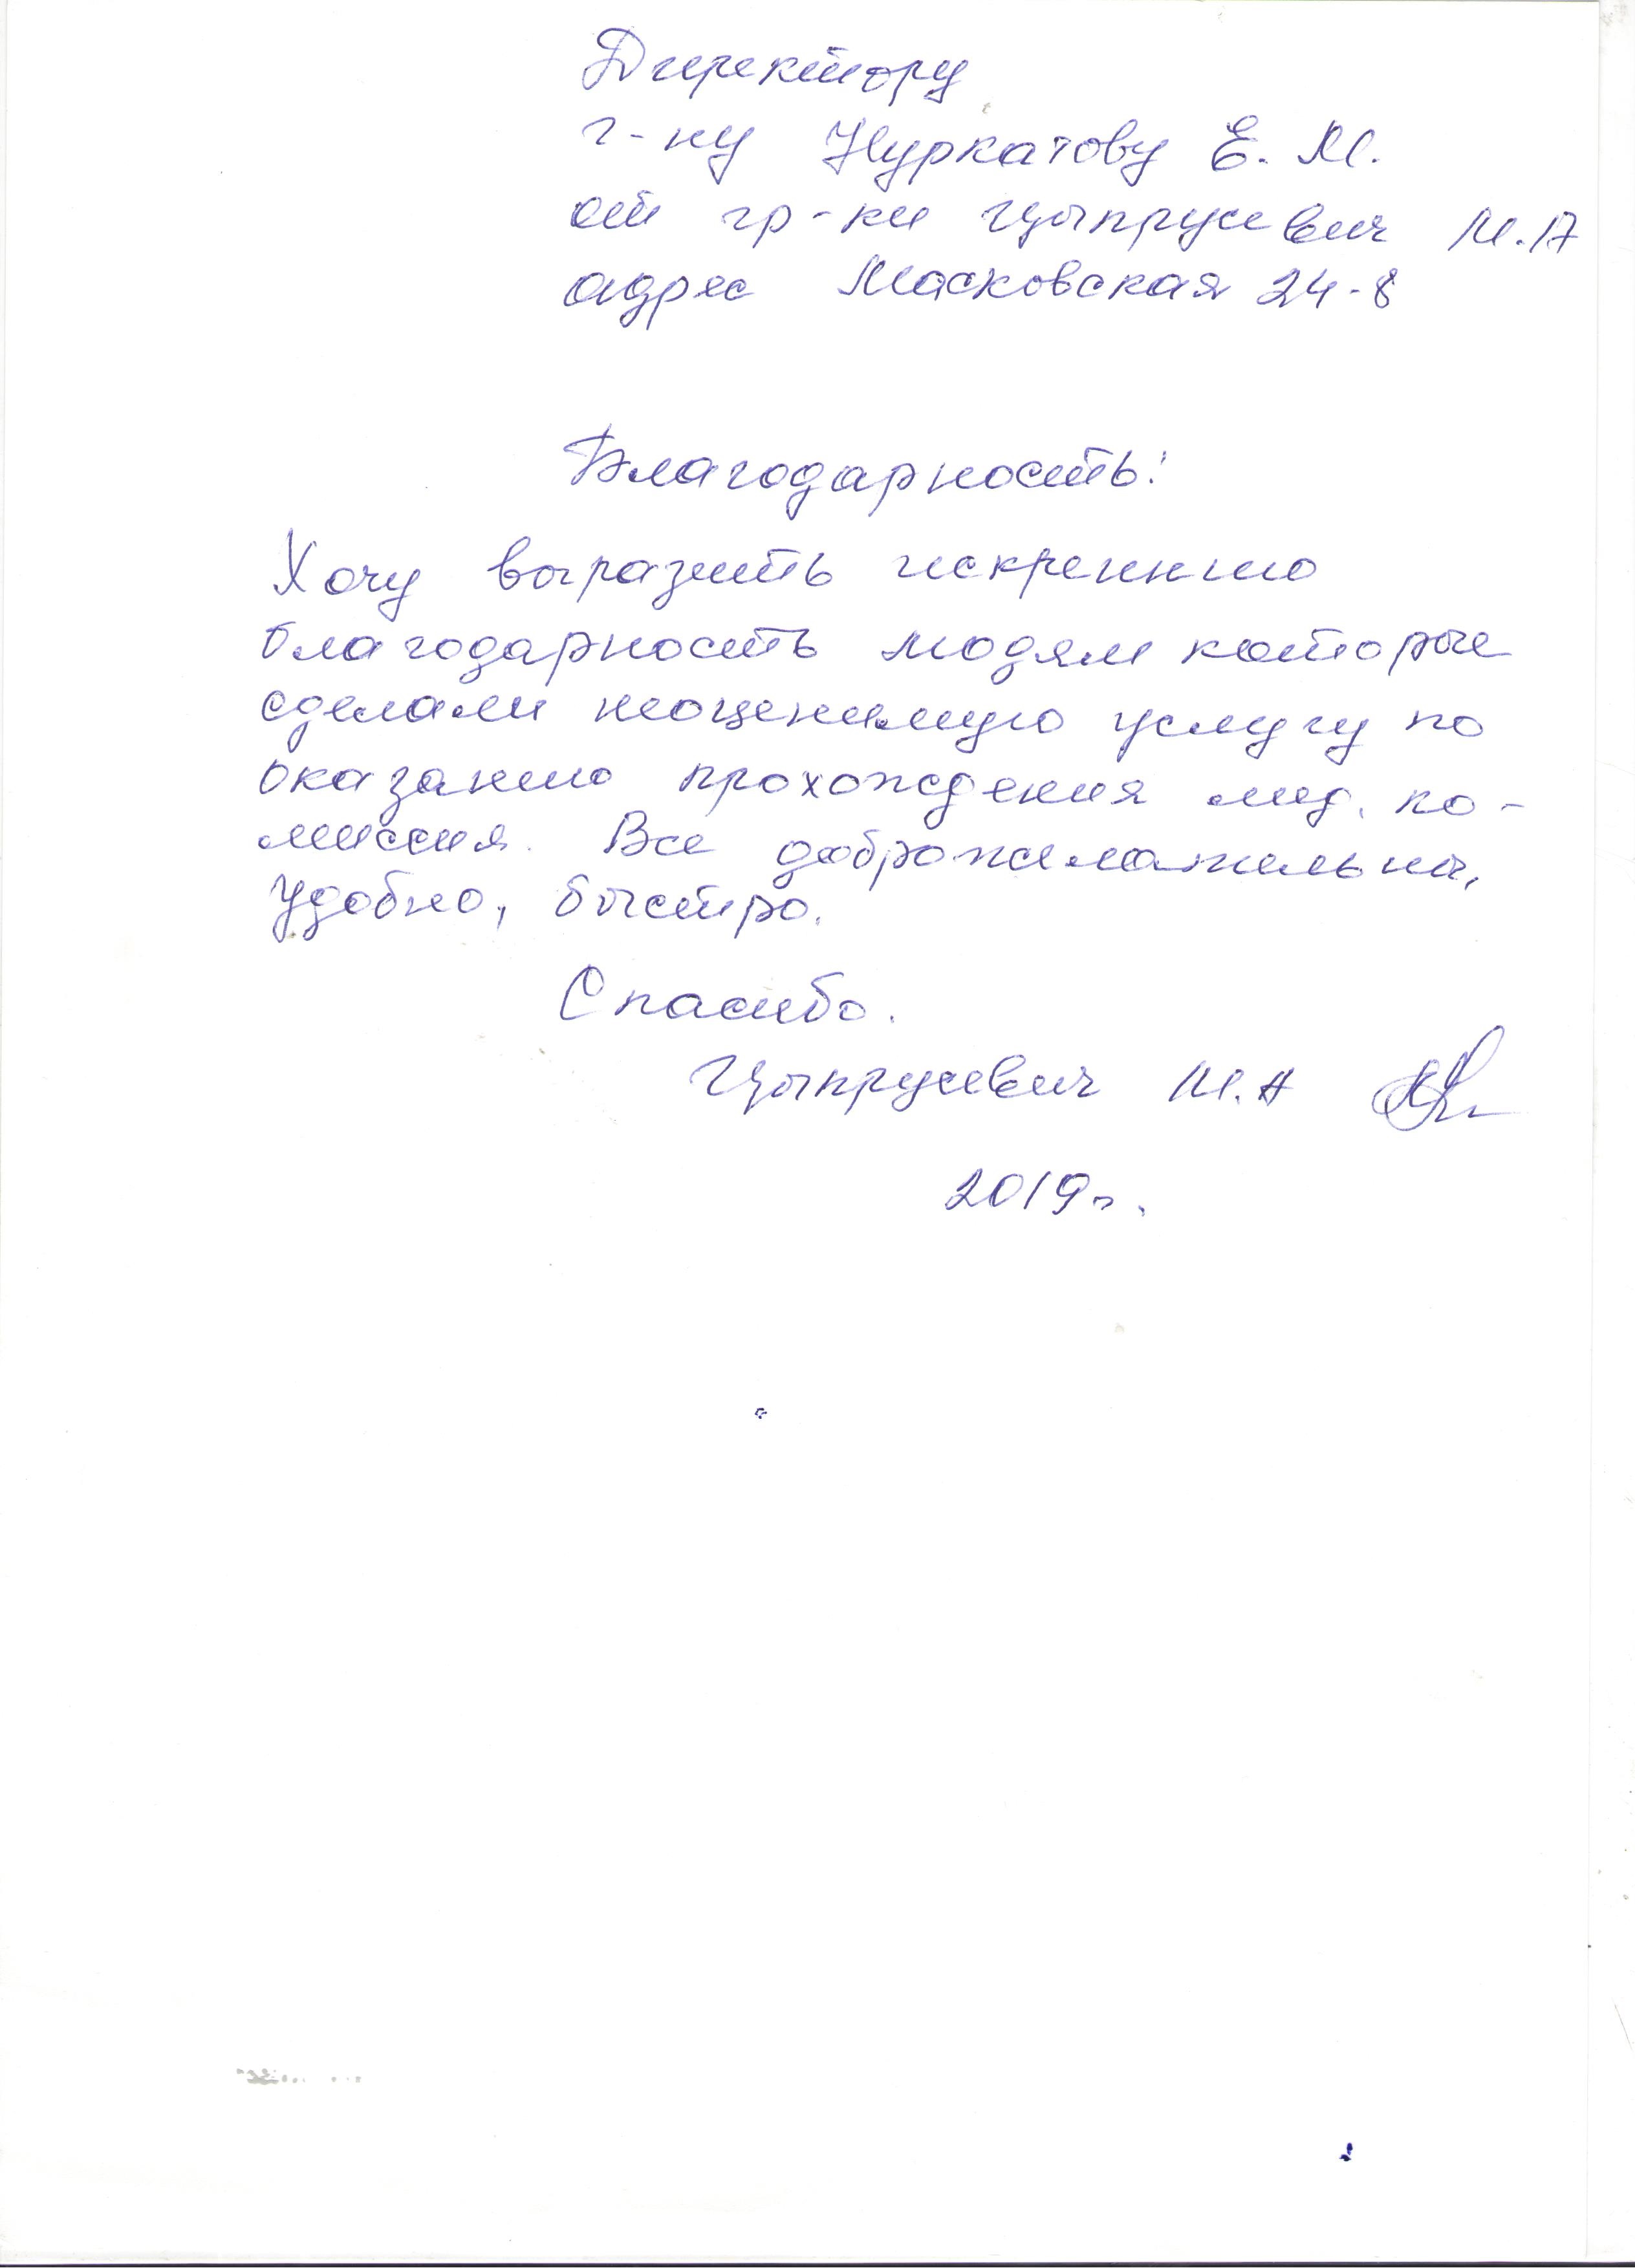 Директору
г-ну Нуркатову Е. М.
от гр-ки Цыпрусевич М.А
адрес Масковская 24-8
Благодарность!
Хочу выразить искреннию
благодарность людям которые
сделали неоценимую услугу по
оказанию прохождения мед. ко-
миссия. Все доброжелательны,
удобно, быстро.
Спасибо.
Цыпрусевич М.А
2019г.